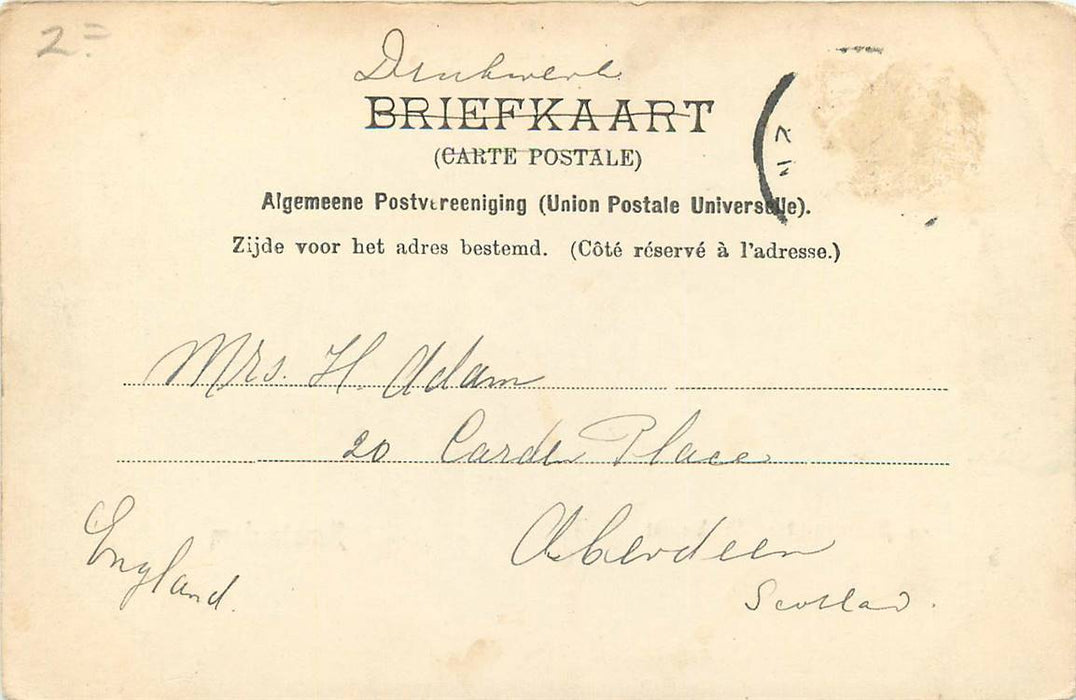 2=
Drukwerk
BRIEFKAART
(CARTE POSTALE)
Algemeene Postvereeniging (Union Postale Universelle).
Zijde voor het adres bestemd. (Côté réservé à l'adresse.)
Mrs. H. Adam
20 Carden Place
Aberdeen
England.
Scotland.